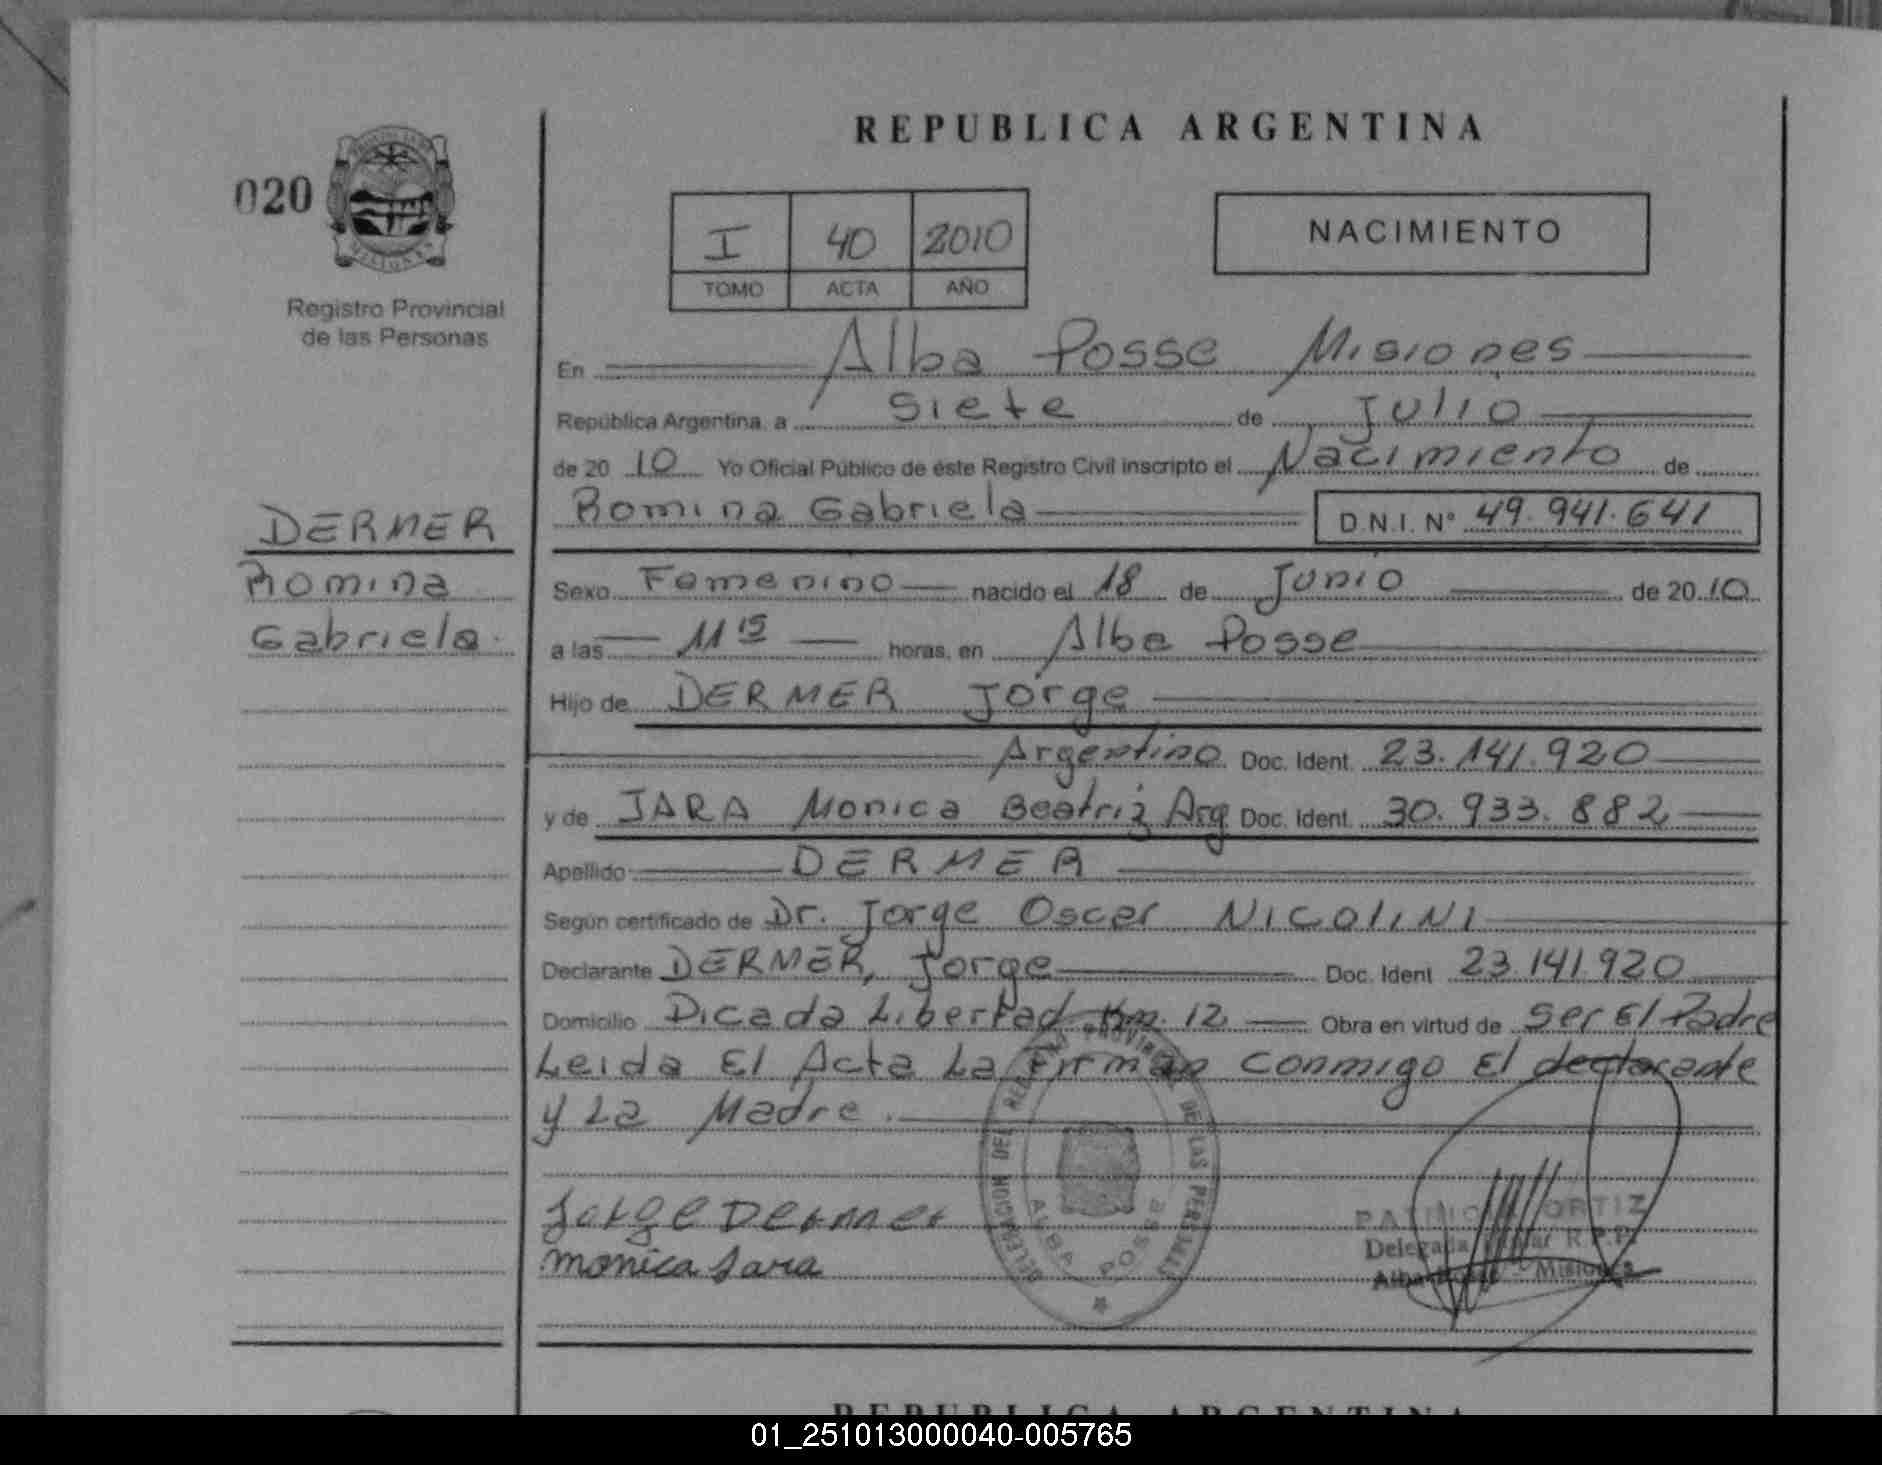 REPUBLICA ARGENTINA
020
Registro Provincial
de las Personas
I 40 2010
TOMO ACTA AÑO
NACIMIENTO
En Alba Posse Misiones
República Argentina, a Siete de Julio
de 20 10 Yo Oficial Público de éste Registro Civil inscripto el Nacimiento de
Romina Gabriela D.N.I. N° 49.941.641
DERMER
Romina
Gabriela
Sexo Femenino nacido el 18 de Junio de 20 10
a las 11 15 horas, en Alba Posse
Hijo de DERMER Jorge
Argentino Doc. Ident. 23.141.920
y de JARA Monica Beatriz Arg Doc. Ident. 30.933.882
Apellido DERMER
Según certificado de Dr. Jorge Oscar NICOLINI
Declarante DERMER, Jorge Doc. Ident 23.141.920
Domicilio Picada Libertad Km. 12 Obra en virtud de Ser El Padre
Leida El Acta La Firman conmigo El declarante
y La Madre.
Jorge Dermer
monica Jara
DELEGACION DEL REGISTRO PROVINCIAL DE LAS PERSONAS
ALBA POSSE
PATRICIA ORTIZ
Delegada Titular R.P.P.
Alba Posse - Misiones
REPUBLICA ARGENTINA
01_251013000040-005765